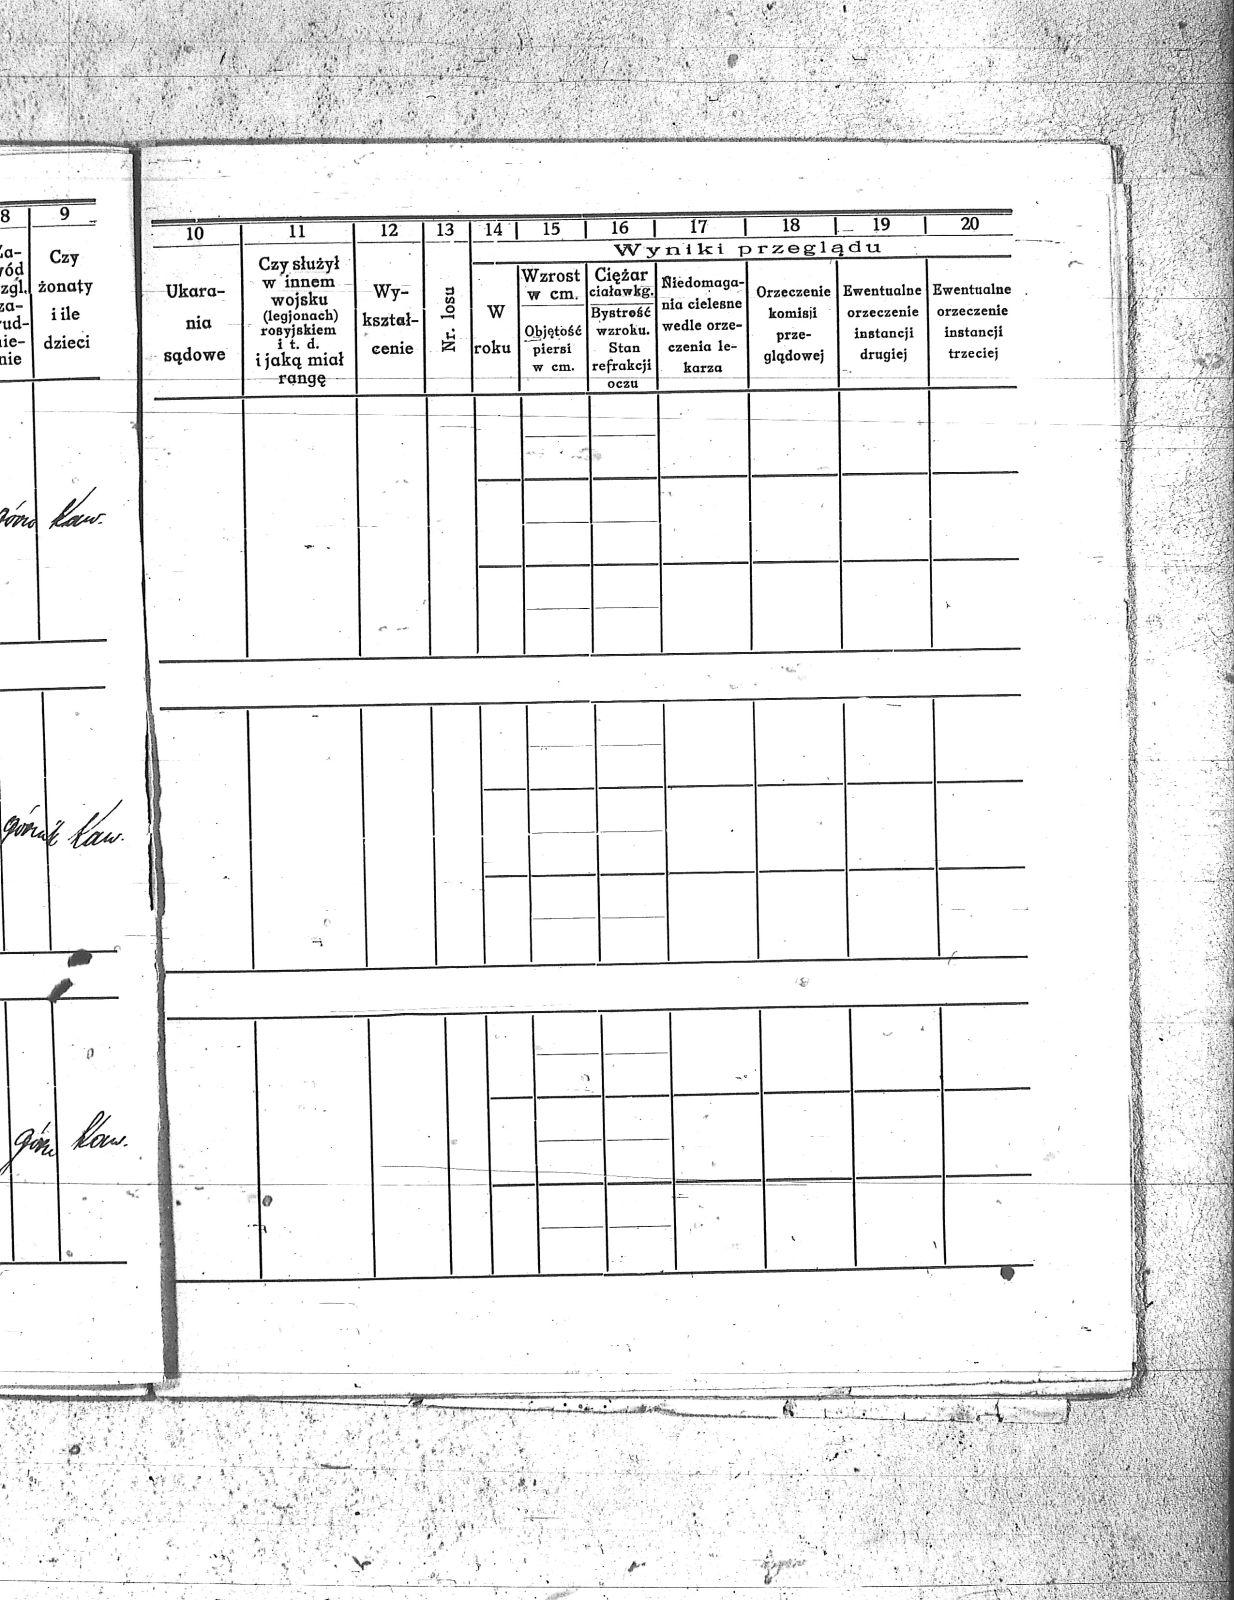 8 9
Za- Czy
wód żonaty
wzgl. i ile
za- dzieci
trud-
nie-
nie
10 11 12 13 14 15 16 17 18 19 20
Wyniki przeglądu
Ukara-
nia
sądowe
Czy służył
w innem
wojsku
(legjonach)
rosyjskiem
i t. d.
i jaką miał
rangę
Wy-
kształ-
cenie
Nr. losu
W
roku
Wzrost
w cm.
Objętość
piersi
w cm.
Ciężar
ciała w kg.
Bystrość
wzroku.
Stan
refrakcji
oczu
Niedomaga-
nia cielesne
wedle orze-
czenia le-
karza
Orzeczenie
komisji
prze-
glądowej
Ewentualne
orzeczenie
instancji
drugiej
Ewentualne
orzeczenie
instancji
trzeciej
górn Kaw.
górnik Kaw.
górn Kaw.